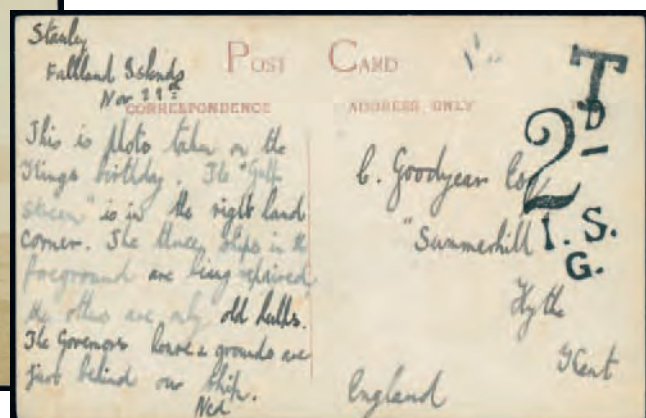 Stanley
Falkland Islands
Nov 11th
POST CARD
CORRESPONDENCE
ADDRESS ONLY
This is photo taken on the
Kings birthday. The "Gulf
stream" is in the right hand
corner. The three ships in the
foreground are being repaired,
the others are only old hulks.
The Governors house & grounds are
just behind our ship.
Ned
C. Goodyear Esq
"Summerhill
Hythe
Kent
England
T
2D-
I. S.
G.